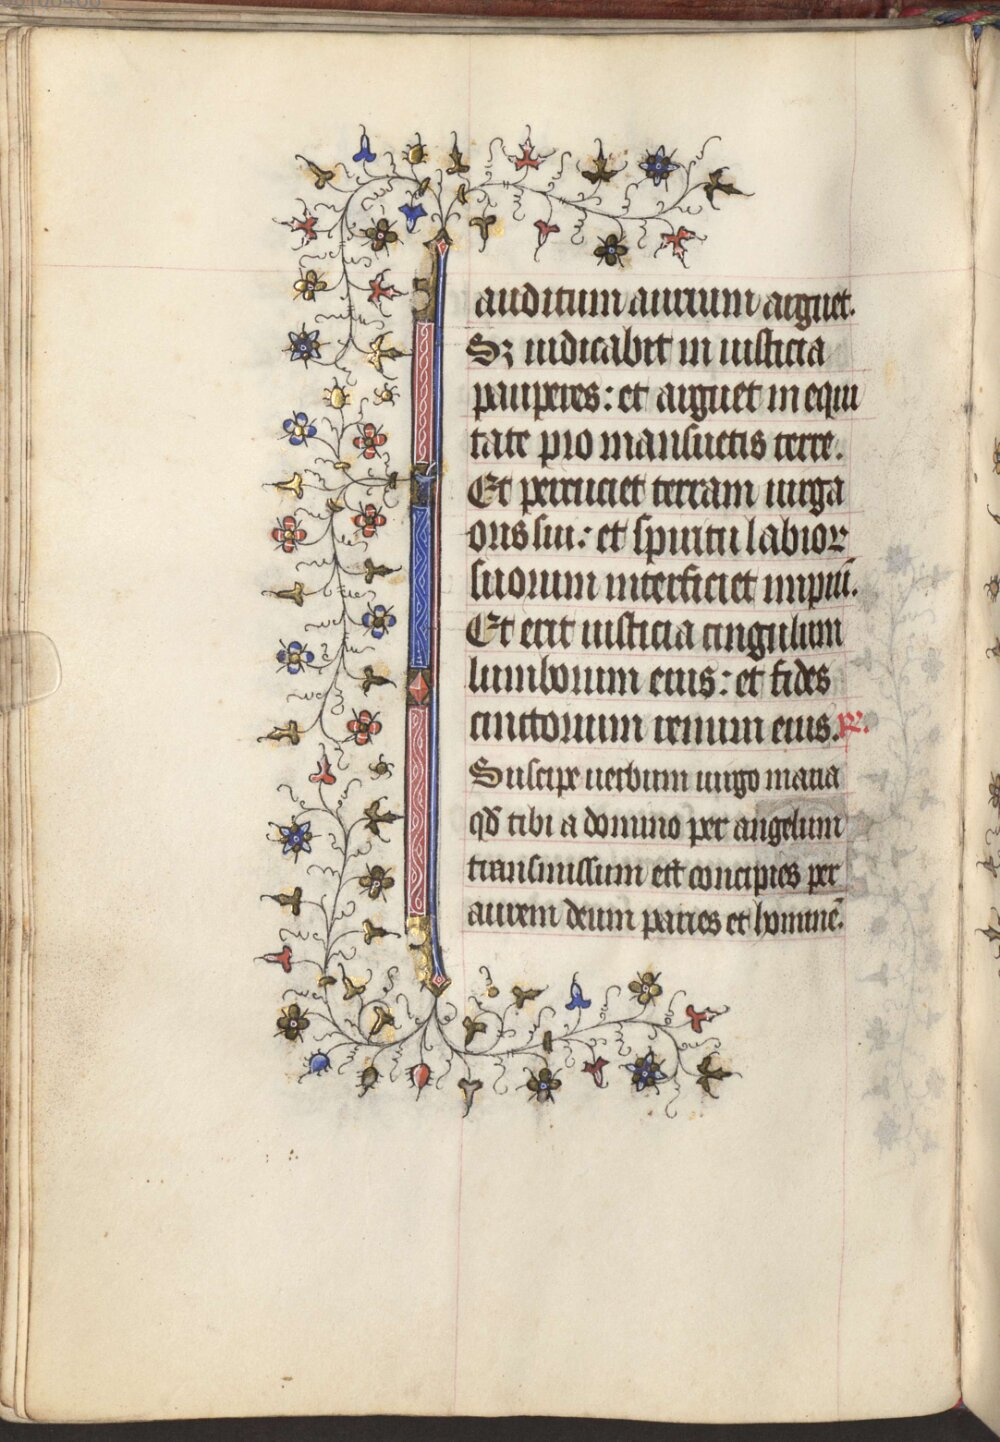 auditum aurium arguet.
Sꝫ iudicabit in iusticia
pauperes: et arguet in equi
tate pro mansuetis terre.
Et percuciet terram uirga
oris sui: et spiritu labioꝝ
suorum interficiet impiū.
Et erit iusticia cingulum
lumborum eius: et fides
cinctorium renum eius. ℟.
Suscipe uerbum uirgo maria
qđ tibi a domino per angelum
transmissum est concipies per
aurem deum paries et hominē.